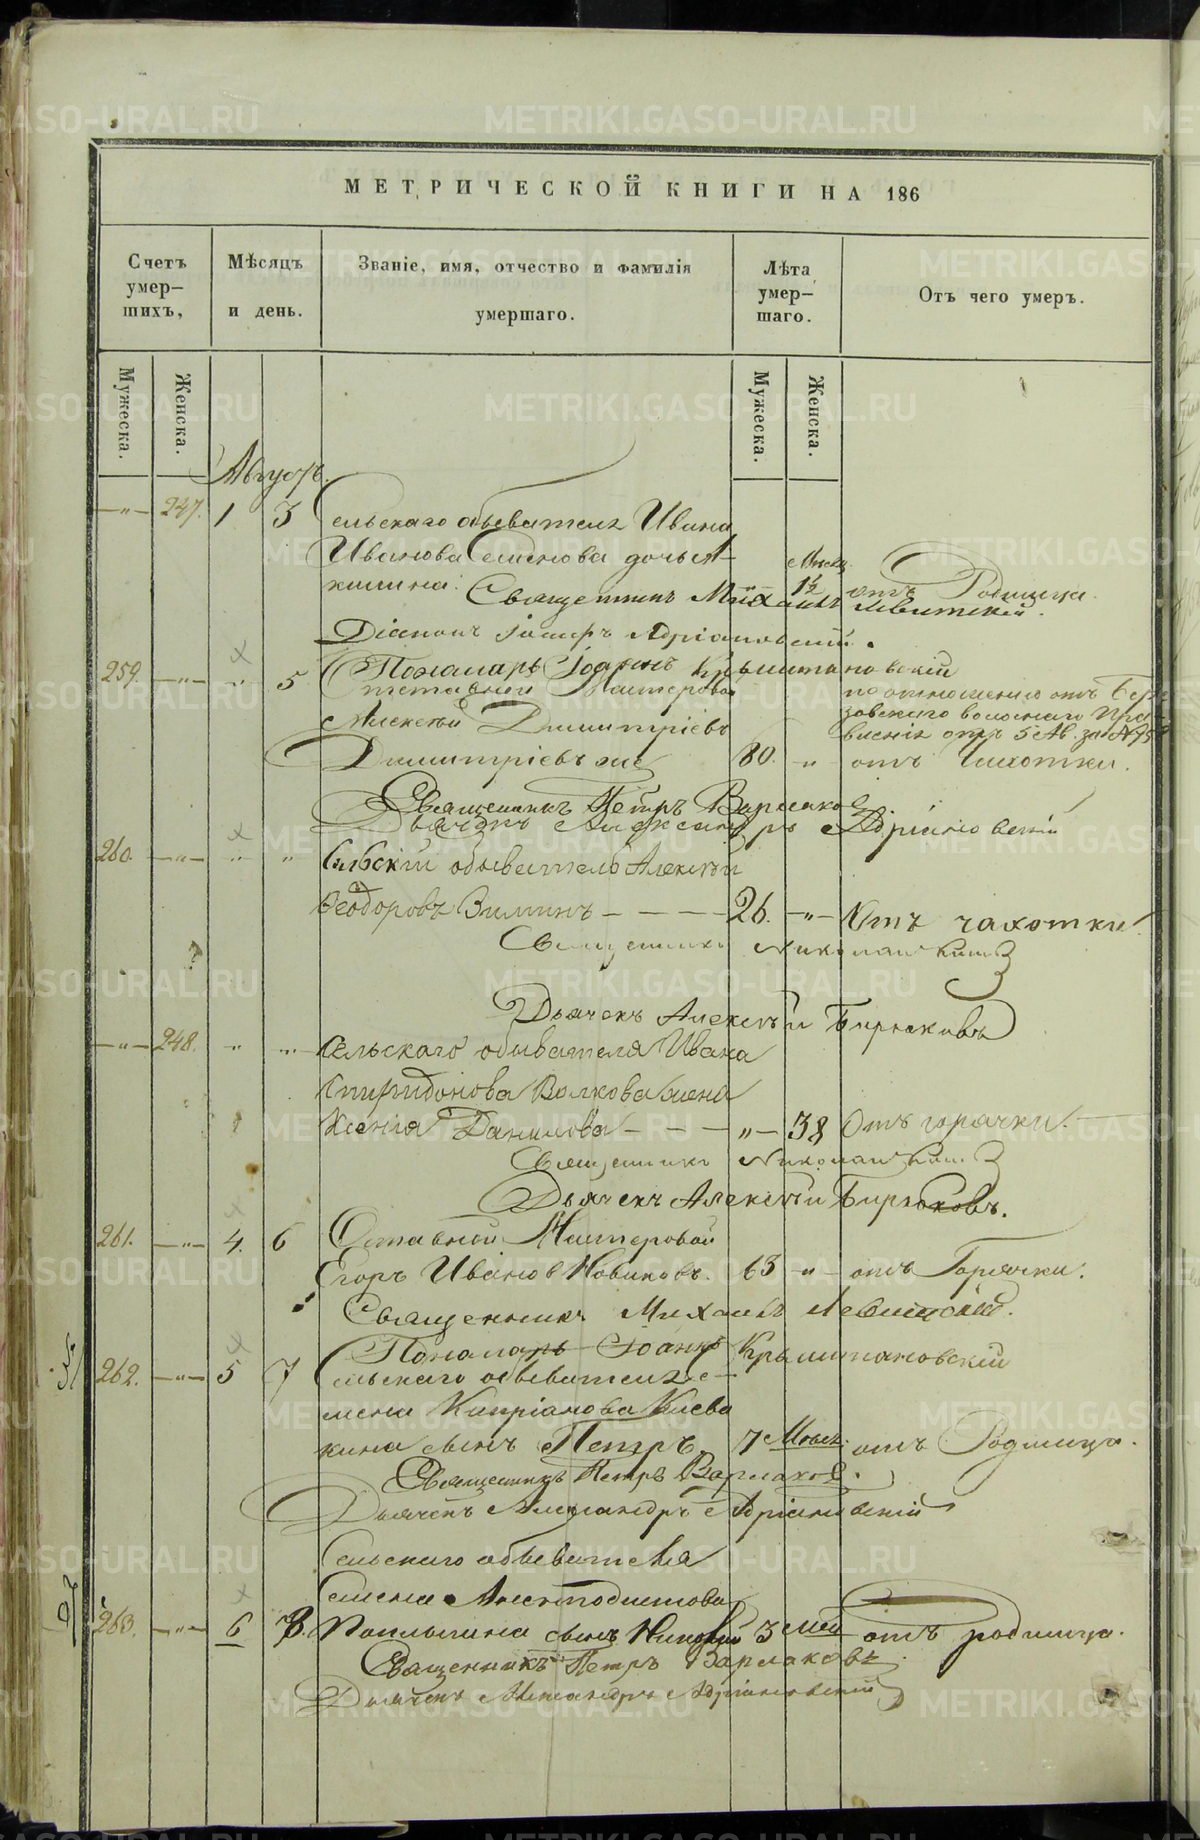 МЕТРИЧЕСКОЙ КНИГИ НА 186
Счетъ умер-шихъ,
Мѣсяцъ и день.
Званіе, имя, отчество и фамилія умершаго.
Лѣта умер-шаго.
Отъ чего умеръ.
Мужеска.
Женска.
Мужеска.
Женска.
Августъ.
—"— 247. 1 3 Сельскаго обывателя Ивана
Иванова Семенова дочь А-
килина. Мѣсяц 1½ отъ Родимца.
Священникъ Михаилъ Левитскій.
Діаконъ Адріановскій.
Пономарь Іоаннъ Крыштановскій
259. —"— " 5 Отставной Мастеровой
Алексѣй Димитріевъ
по отношенію отъ Бере-
зовскаго волостнаго Прав-
вленія отъ 5 Ав. за №
Димитріевъ же 80. " отъ Чихотки.
Священникъ Петръ Варлаковъ.
Дьячекъ Александръ Адріановскій
260. —"— " " Сельскій обыватель Алексѣй
Ѳеодоровъ Зиминъ — — — — 26. —"— Отъ чахотки.
Священникъ Николай
Дьячекъ Алексѣй Бирюковъ
—"— 248. " " Сельскаго обывателя Ивана
Спиридонова Волкова жена
Ксенія Данилова — — — —"— 38 Отъ горячки.
Священникъ Николай
Дьячекъ Алексѣй Бирюковъ.
261. —"— 4. 6 Отставной Мастеровой
Егоръ Ивановъ Новиковъ. 63 —"— отъ Горячки.
Священникъ Михаилъ Левитскій.
Пономарь Іоаннъ Крыштановскій
262. —"— 5 7 Сельскаго обывателя Се-
мена Кипріанова Клева
кина сынъ Петръ 7 Мѣсяц. отъ Родимца.
Священникъ Петръ Варлаковъ.
Дьячекъ Александръ Адріановскій
Сельскаго обывателя
Семена
263. —"— 6 8. сынъ 3 отъ родимца.
Священникъ Петръ Варлаковъ.
Дьячекъ Александръ Адріановскій
METRIKI.GASO-URAL.RU